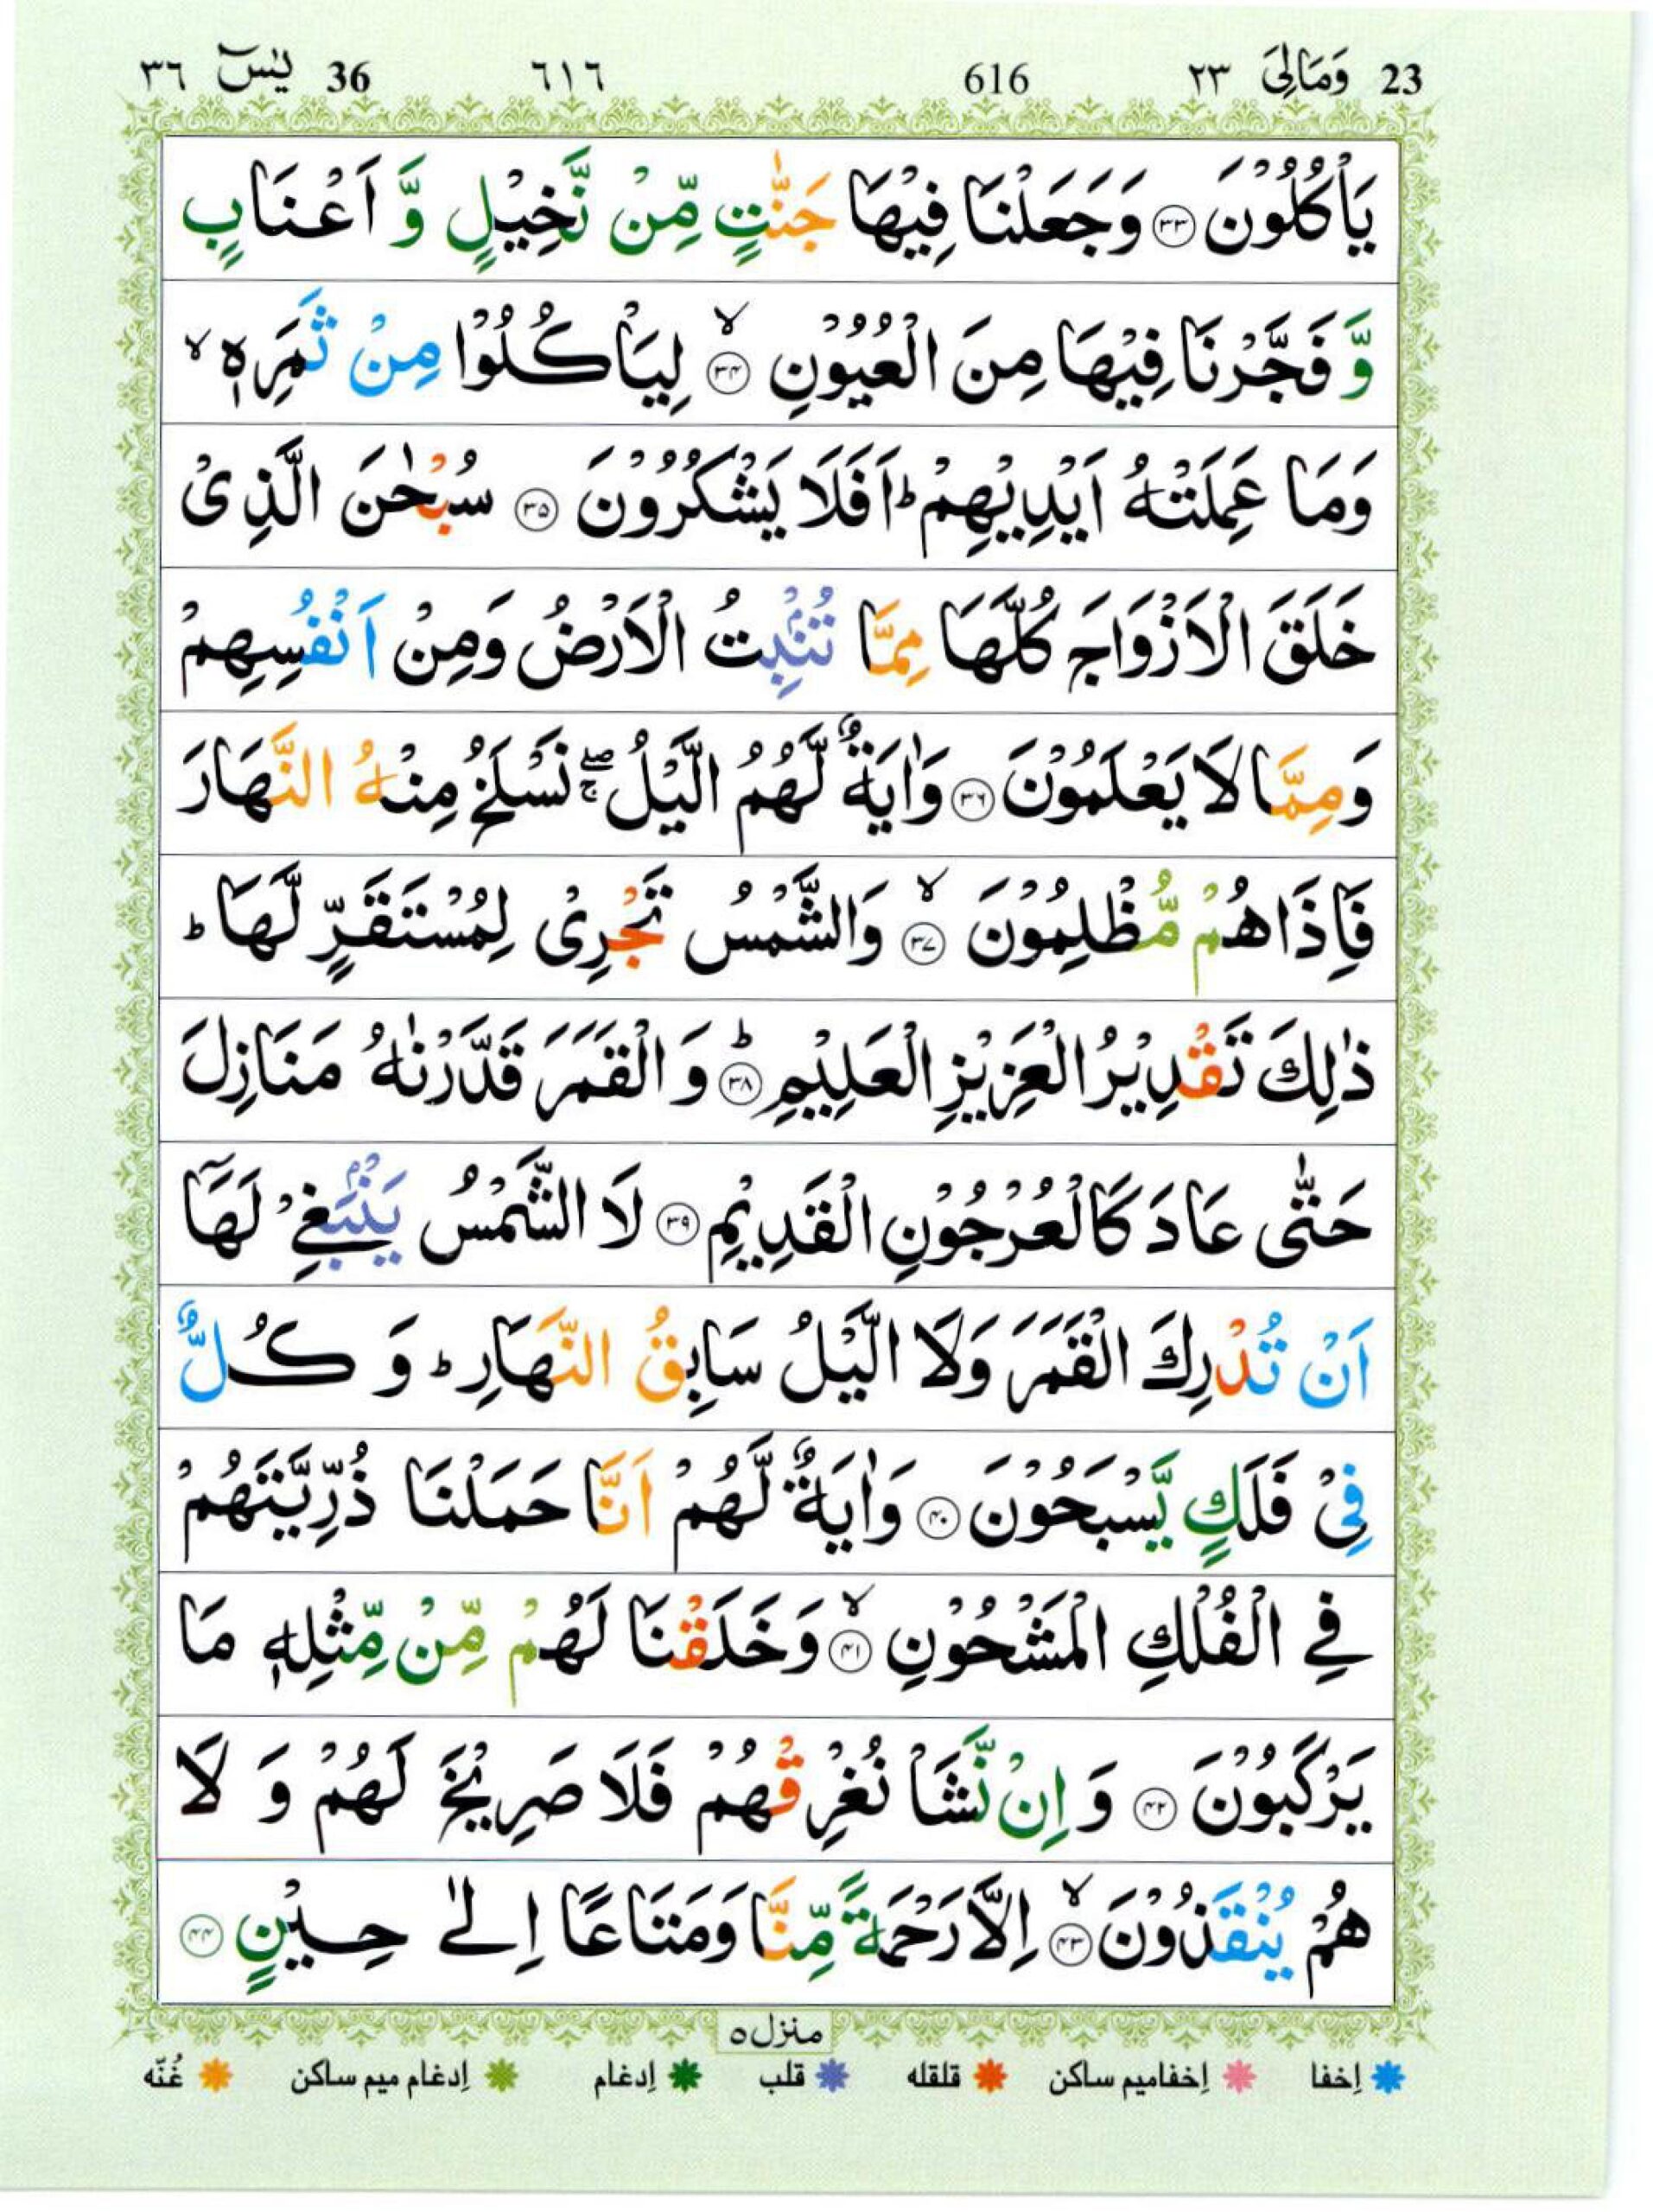 23 وَمَالِیَ ٢٣ 616 ٦١٦ 36 یٰسٓ ٣٦
یَاْكُلُوْنَ ﴿۳۳﴾ وَجَعَلْنَا فِیْهَا جَنّٰتٍ مِّنْ نَّخِیْلٍ وَّ اَعْنَابٍ
وَّ فَجَّرْنَا فِیْهَا مِنَ الْعُیُوْنِ ۙ﴿۳۴﴾ لِیَاْكُلُوْا مِنْ ثَمَرِهٖ ۙ
وَمَا عَمِلَتْهُ اَیْدِیْهِمْ ؕ اَفَلَا یَشْكُرُوْنَ ﴿۳۵﴾ سُبْحٰنَ الَّذِیْ
خَلَقَ الْاَزْوَاجَ كُلَّهَا مِمَّا تُنْۢبِتُ الْاَرْضُ وَمِنْ اَنْفُسِهِمْ
وَمِمَّا لَا یَعْلَمُوْنَ ﴿۳۶﴾ وَاٰیَةٌ لَّهُمُ الَّیْلُ ۖۚ نَسْلَخُ مِنْهُ النَّهَارَ
فَاِذَا هُمْ مُّظْلِمُوْنَ ۙ﴿۳۷﴾ وَالشَّمْسُ تَجْرِیْ لِمُسْتَقَرٍّ لَّهَا ؕ
ذٰلِكَ تَقْدِیْرُ الْعَزِیْزِ الْعَلِیْمِ ؕ﴿۳۸﴾ وَ الْقَمَرَ قَدَّرْنٰهُ مَنَازِلَ
حَتّٰی عَادَ كَالْعُرْجُوْنِ الْقَدِیْمِ ﴿۳۹﴾ لَا الشَّمْسُ یَنْۢبَغِیْ لَهَاۤ
اَنْ تُدْرِكَ الْقَمَرَ وَلَا الَّیْلُ سَابِقُ النَّهَارِ ؕ وَ كُلٌّ
فِیْ فَلَكٍ یَّسْبَحُوْنَ ﴿۴۰﴾ وَاٰیَةٌ لَّهُمْ اَنَّا حَمَلْنَا ذُرِّیَّتَهُمْ
فِی الْفُلْكِ الْمَشْحُوْنِ ۙ﴿۴۱﴾ وَخَلَقْنَا لَهُمْ مِّنْ مِّثْلِهٖ مَا
یَرْكَبُوْنَ ﴿۴۲﴾ وَ اِنْ نَّشَاْ نُغْرِقْهُمْ فَلَا صَرِیْخَ لَهُمْ وَ لَا
هُمْ یُنْقَذُوْنَ ۙ﴿۴۳﴾ اِلَّا رَحْمَةً مِّنَّا وَمَتَاعًا اِلٰی حِیْنٍ ﴿۴۴﴾
منزل ٥
إخفا إخفاميم ساكن قلقله قلب إدغام إدغام ميم ساكن غُنّه